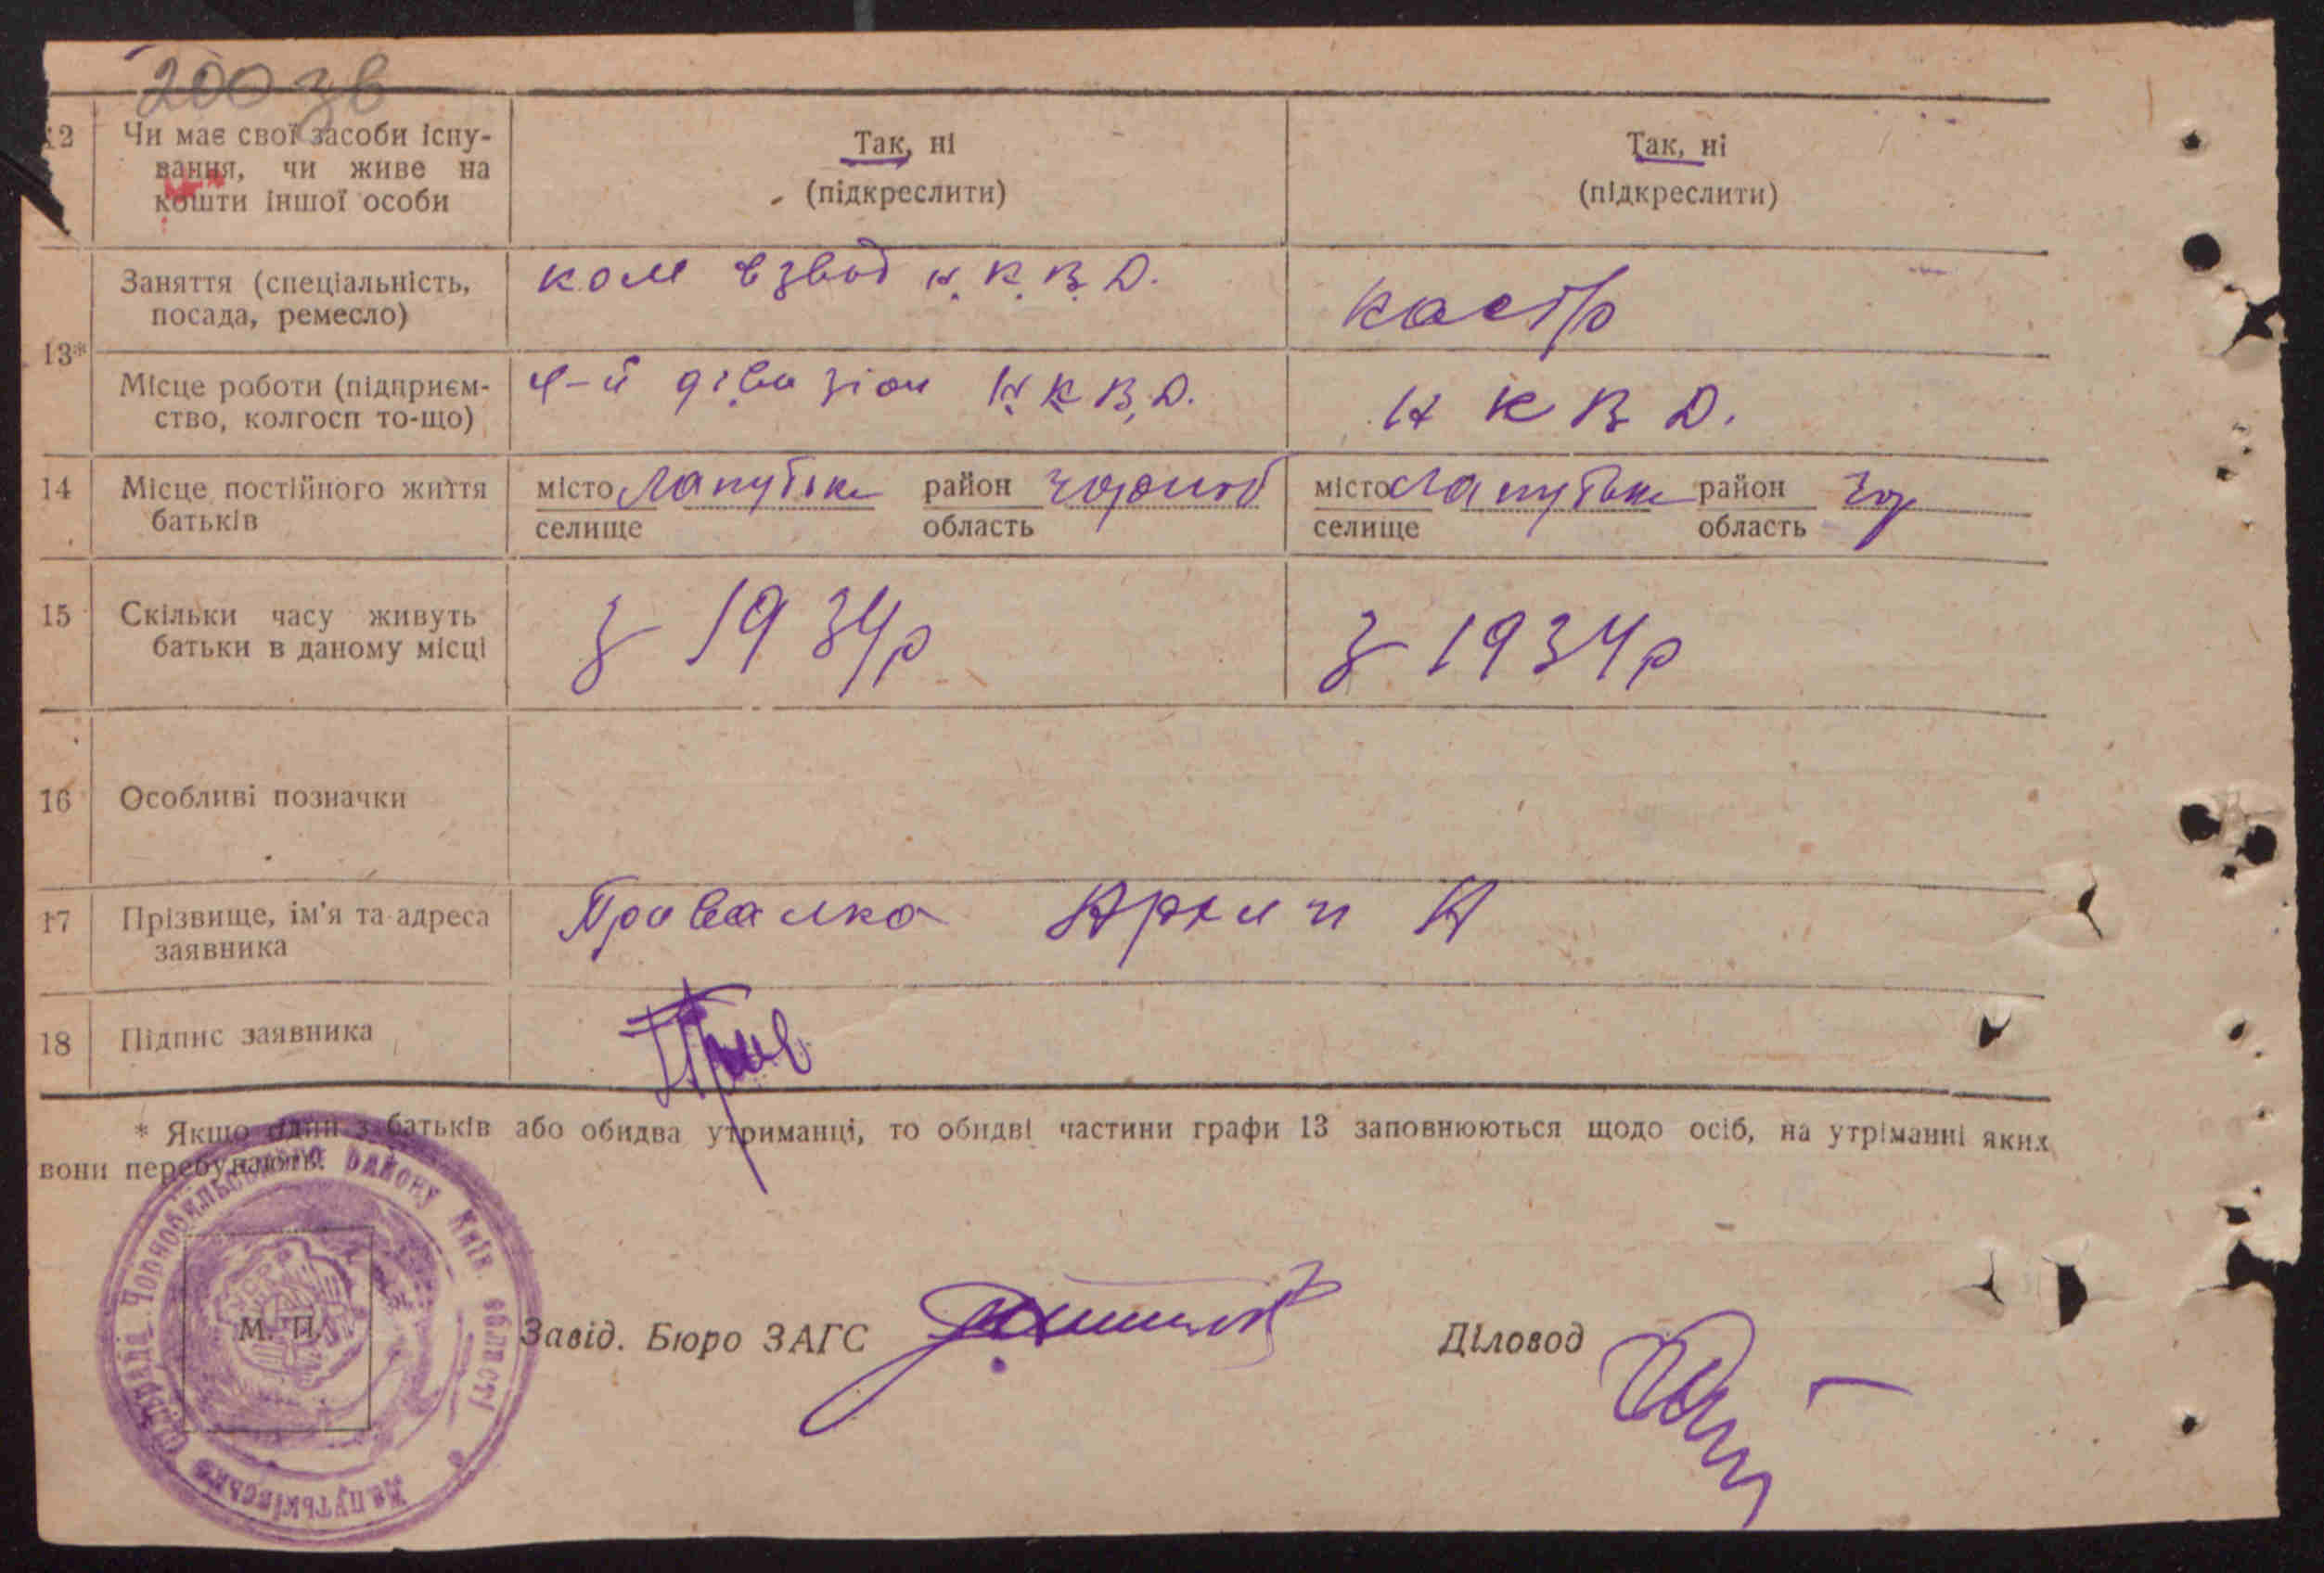 200 зв
12 Чи має свої засоби існу-
вання, чи живе на
кошти іншої особи
Так, ні
(підкреслити)
Так, ні
(підкреслити)
13*
Заняття (спеціальність,
посада, ремесло)
ком взвод Н.К.В.Д.
касір
Місце роботи (підприєм-
ство, колгосп то-що)
4-й дівізіон Н.К.В.Д.
Н К В Д.
14 Місце постійного життя
батьків
місто Лапутьки район Чорноб
селище область
місто Лапутьки район Чор
селище область
15 Скільки часу живуть
батьки в даному місці
З 1934р
З 1934р
16 Особливі позначки
17 Прізвище, ім'я та адреса
заявника
Привалко
18 Підпис заявника
* Якщо один з батьків або обидва утриманці, то обидві частини графи 13 заповнюються щодо осіб, на утріманні яких
вони перебувають.
Чорнобильського району Київ. області
Лапутьківська
УСРР
М. П.
Завід. Бюро ЗАГС
Діловод